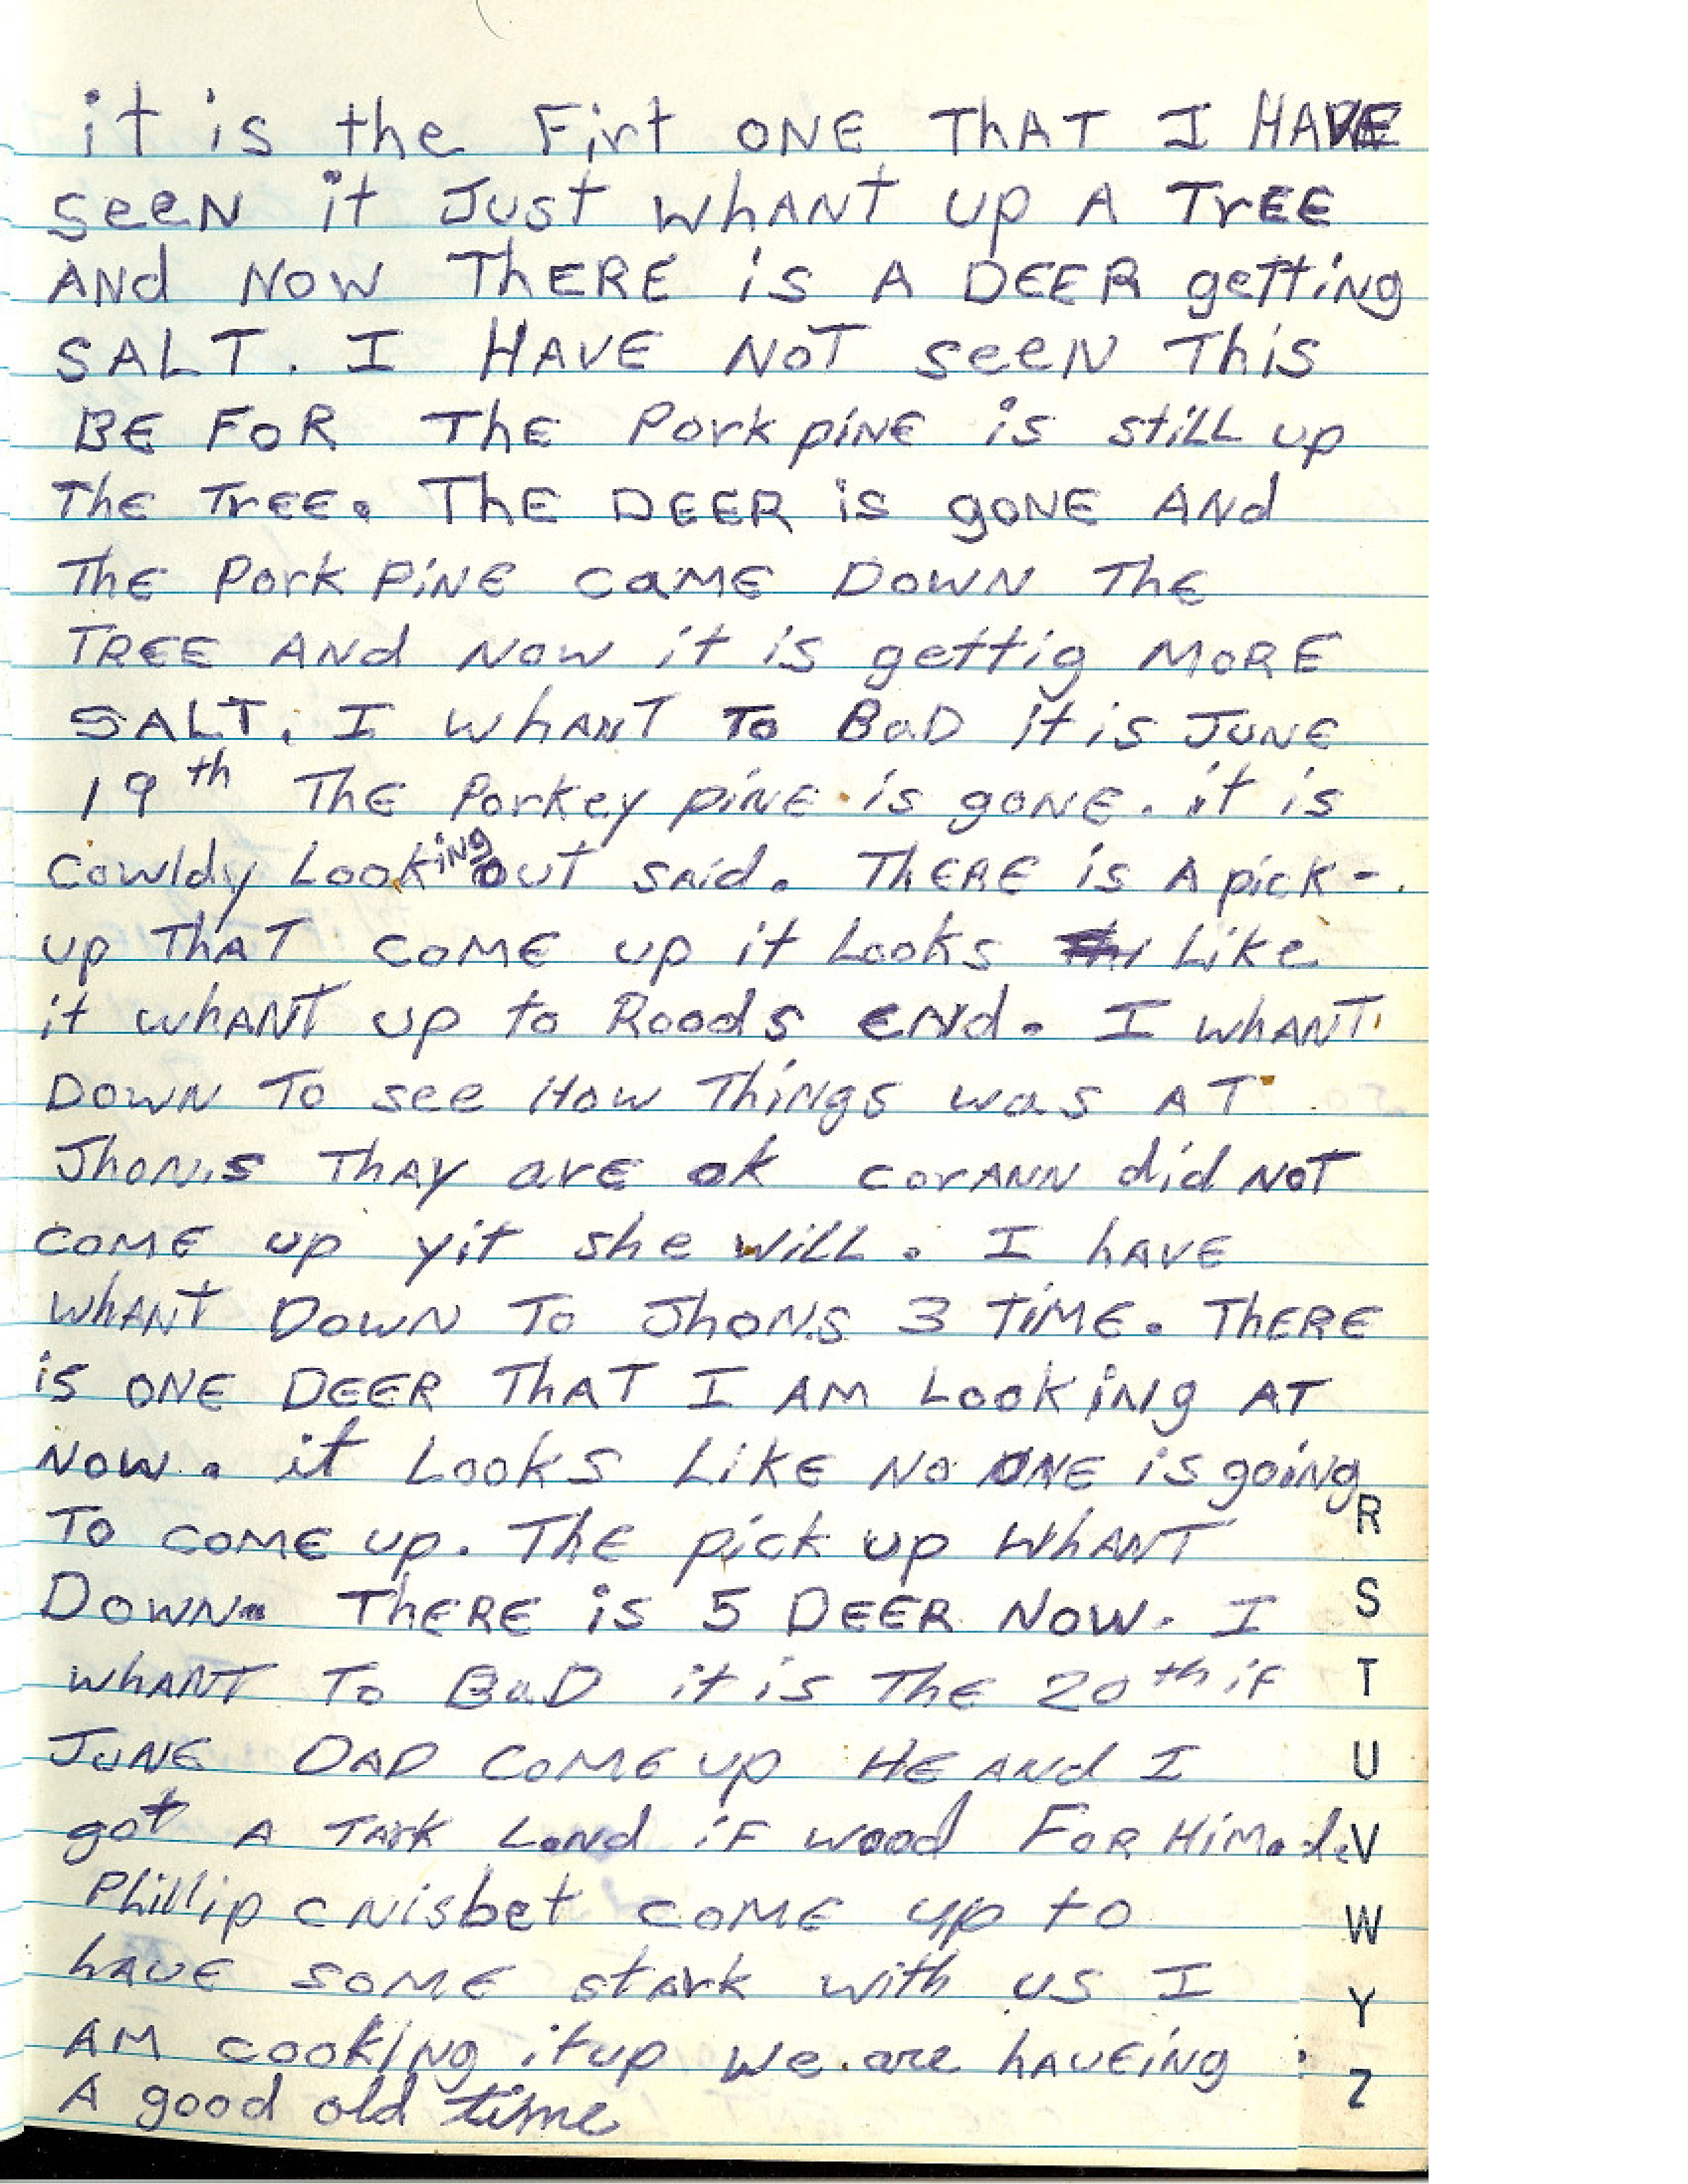 it is the Firt ONE ThAT I HAVE
seeN it Just whANT up A TrEE
ANd NOW ThERE is A DEER getting
SALT. I HAVE NOT seeN This
BE FOR ThE Pork piNE is stiLL up
ThE TrEE. ThE DEER is gONE ANd
ThE Pork PiNE caME DOWN ThE
TREE ANd Now it is gettig MORE
SALT. I whANT To BaD it is JUNE
19th ThE Porkey piNE is gONE. it is
Cowldy LookiNg OUT SAid. ThERE is A pick-
up ThAT COME up it Looks Like
it whANT up to Roods eNd. I whANT
DOWN To see How ThiNgs was AT
Jhon,s ThAY arE ok corANN did NOT
COME up yit she wiLL. I hAVE
whANT DOWN To JhoN.s 3 TiME. ThERE
is ONE DEER ThAT I AM LookiNg AT
NOW. it Looks LikE No ONE is goiNg
To COME up. ThE pick up WhANT
DOWN. ThERE is 5 DEER NOW. I
whANT To BaD it is ThE 20th iF
JUNE DAD COME up HE ANd I
got A TArk LoNd iF wood FoR HiM.
Phillip C Nisbet COME up to
hAVE SOME stArk with us I
AM cookiNg it up we are hAVEiNg
A good old time
R
S
T
U
V
W
Y
Z